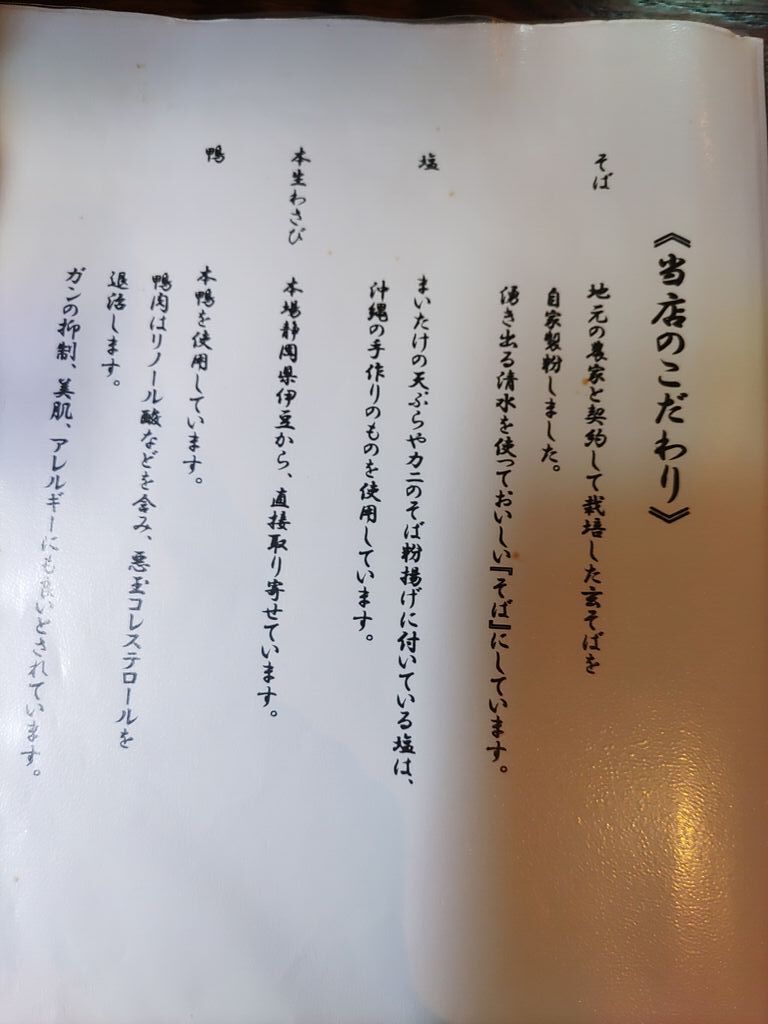 《当店のこだわり》
そば
地元の農家と契約して栽培した玄そばを
自家製粉しました。
湧き出る清水を使っておいしい『そば』にしています。
塩
まいたけの天ぷらやカニのそば粉揚げに付いている塩は、
沖縄の手作りのものを使用しています。
本生わさび
本場静岡県伊豆から、直接取り寄せています。
鴨
本鴨を使用しています。
鴨肉はリノール酸などを含み、悪玉コレステロールを
退治します。
ガンの抑制、美肌、アレルギーにも良いとされています。